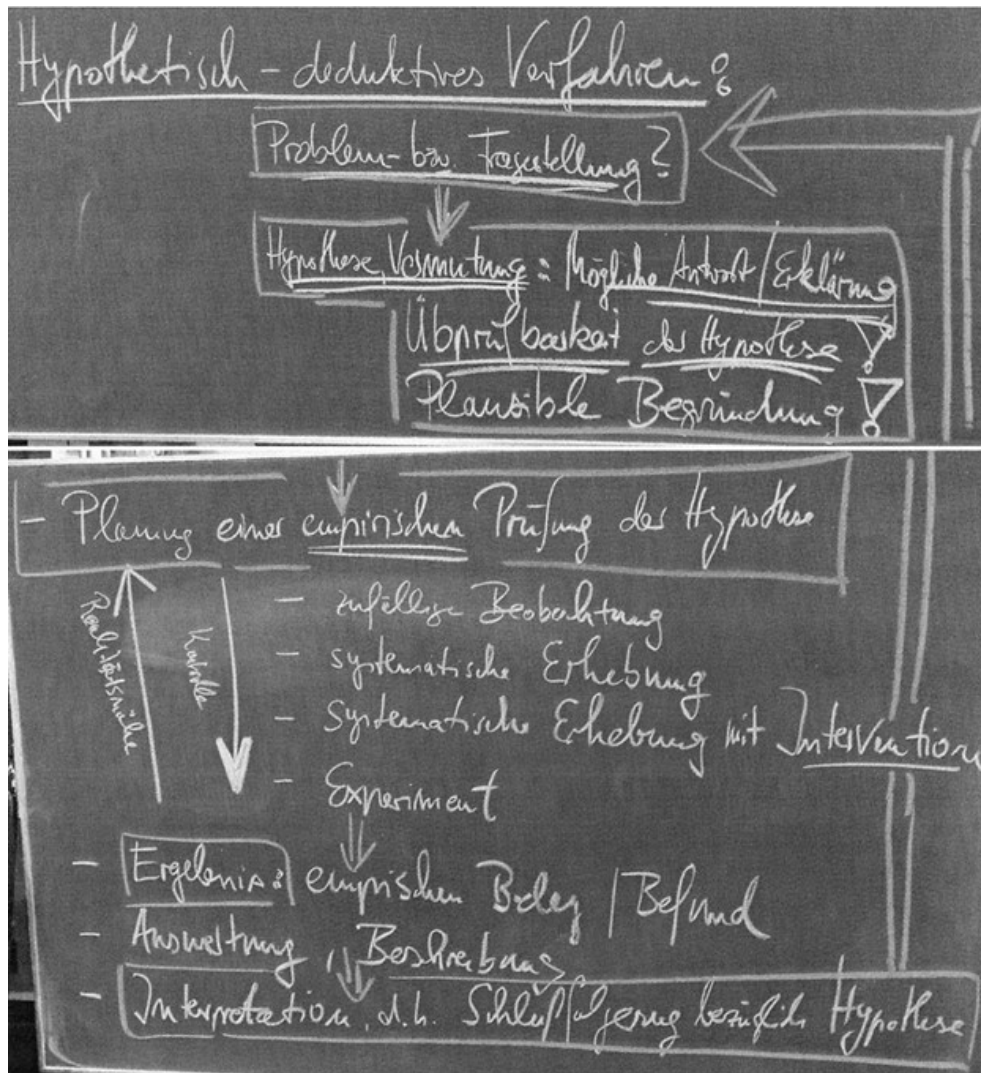 Hypothetisch-deduktives Verfahren:
Problem- bzw. Fragestellung?
Hypothese, Vermutung = Mögliche Antwort / Erklärung
Überprüfbarkeit der Hypothese!
Plausible Begründung!
- Planung einer empirischen Prüfung der Hypothese
Realitätsnähe
Kontrolle
- zufällige Beobachtung
- systematische Erhebung
- systematische Erhebung mit Intervention
- Experiment
- Ergebnis: empirischen Beleg / Befund
- Auswertung, Beschreibung
- Interpretation, d.h. Schlußfolgerung bezüglich Hypothese